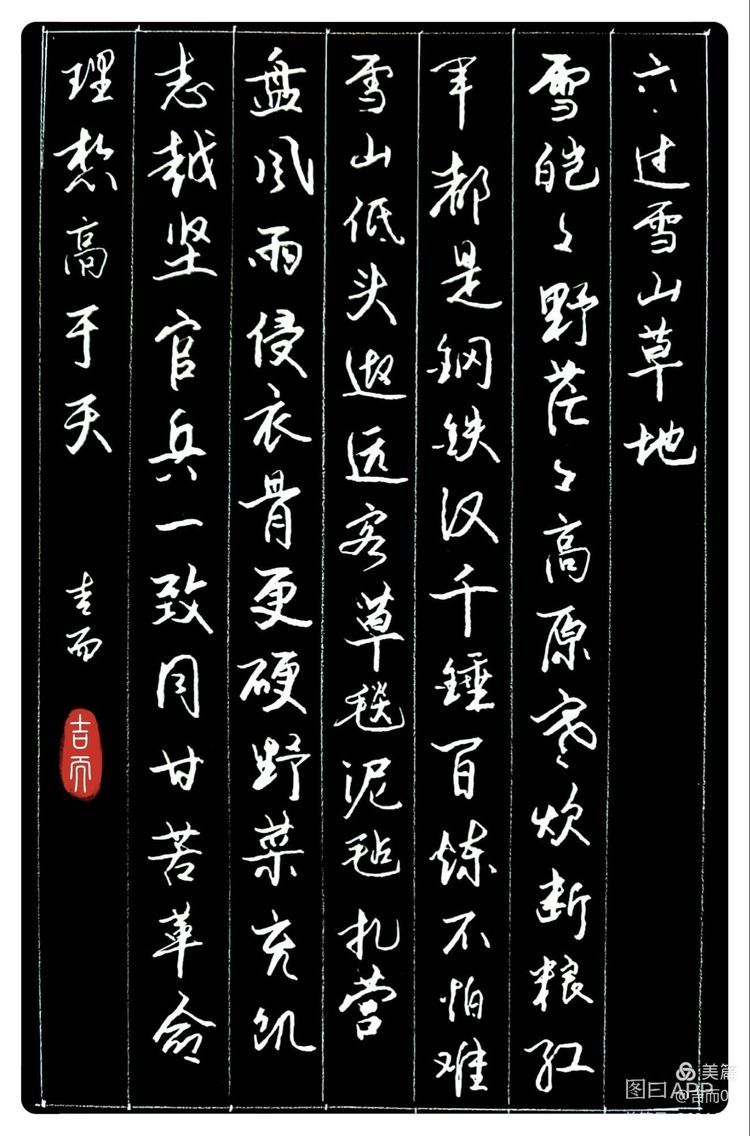 六·过雪山草地
雪皑々野茫々高原寒炊断粮红
军都是钢铁汉千锤百炼不怕难
雪山低头迎远客草毯泥毡扎营
盘风雨侵衣骨更硬野菜充饥
志越坚官兵一致同甘苦革命
理想高于天
吉而
吉而
美篇
图曰APP
@吉而0